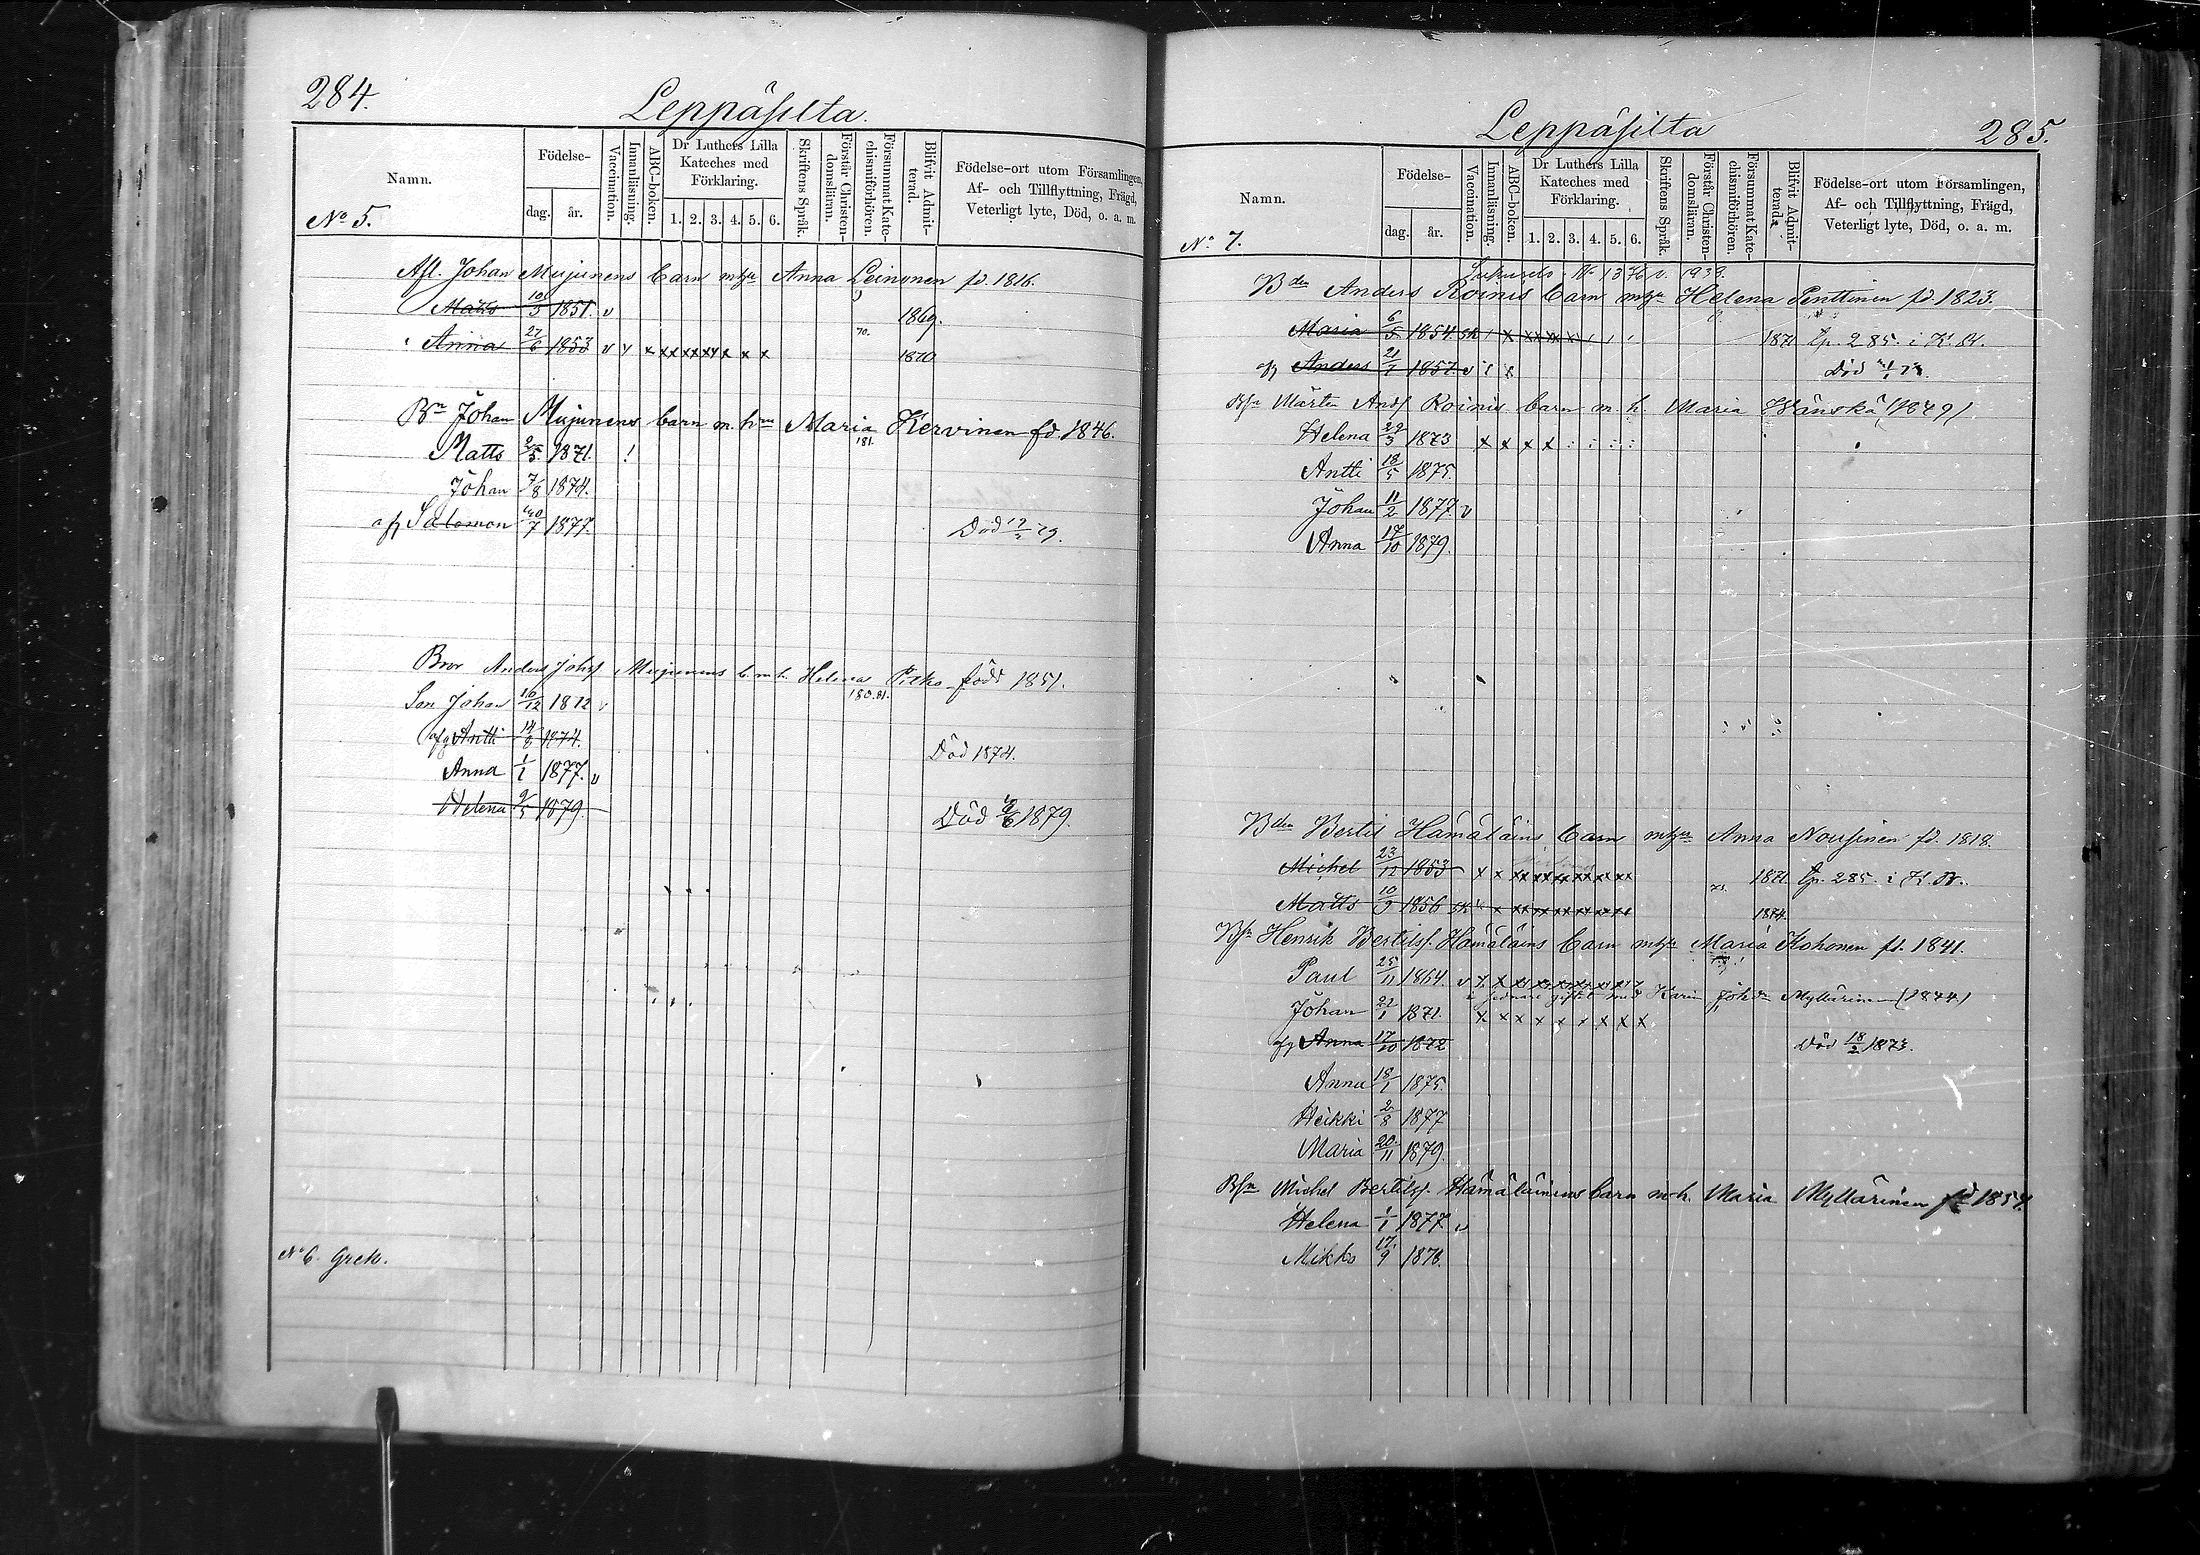 284.
Leppäsilta.
Namn.
Födelse-
dag. år.
Vaccination.
Innanläsning.
ABC-boken.
Dr Luthers Lilla Kateches med Förklaring.
1. 2. 3. 4. 5. 6.
Skriftens Språk.
Förstår Christendomsläran.
Försummat Katechismiförhören.
Blifvit Admitterad.
Födelse-ort utom Församlingen,
Af- och Tillflyttning, Frägd,
Veterligt lyte, Död, o. a. m.
No 5.
Afl. Johan Mujunens barn m hu Anna Leinonen fd. 1816.
Matts 10/3 1851. v 1869.
Anna 27/6 1853 v v x x x x x x x x x 70. 1870
Bn Johan Mujunens barn m. hru Maria Kervinen fd. 1846.
Matts 2/5 1871. ! 181.
Johan 7/8 1874.
afg Salomon 20/7 1877. Död 79.
Bror Anders Johsf. Mujunens b. m h. Helena Pitko född 1851.
Son Johan 16/12 1872 v 180.81.
afg Antti 14/8 1874. Död 1874.
Anna 1/1 1877. v
Helena 9/5 1879. Död 1879.
No 6. Grek.
Leppäsilta
285.
Namn.
Födelse-
dag. år.
Vaccination.
Innanläsning.
ABC-boken.
Dr Luthers Lilla Kateches med Förklaring.
1. 2. 3. 4. 5. 6.
Skriftens Språk.
Förstår Christendomsläran.
Försummat Katechismiförhören.
Blifvit Admitterad.
Födelse-ort utom Församlingen,
Af- och Tillflyttning, Frägd,
Veterligt lyte, Död, o. a. m.
No 7.
1939.
Bden Anders Roinis barn m hu Helena Penttinen fd. 1823.
Maria 6/5 1854 1871 tp. 285. i K. B.
afg Anders 21/7 1857. v Död
Bsn Mårten Andsf Roinis barn m. h. Maria Wänskä (1849)
Helena 22/3 1873 x x x x
Antti 18/5 1875.
Johan 11/2 1877. v
Anna 17/10 1879.
Bden Bertil Hämäläins barn m hu Anna Nousinen fd. 1818.
Michel 23/12 1853 x x x x x x x x x 1871. tp. 285. i K. B.
Matts 10/9 1856 x x x x x x x x 1874.
Bsn Henrik Bertilsf. Hämäläins barn m hu Maria Kohonen fd. 1841.
Paul 25/11 1864. v
gift med Karin Johdr Myllärinen (1874)
Johan 22/1 1871. x x x x x x x x x
afg Anna 17/10 1872 Död 18/2 1873.
Anna 18/1 1875.
Heikki 2/8 1877
Maria 20/11 1879.
Bsn Michel Bertilsf. Hämäläinens barn m h. Maria Myllärinen fd 1854.
Helena 1/1 1877. v
Mikko 17/9 1878.